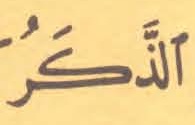 ٱلذَّكَرُ